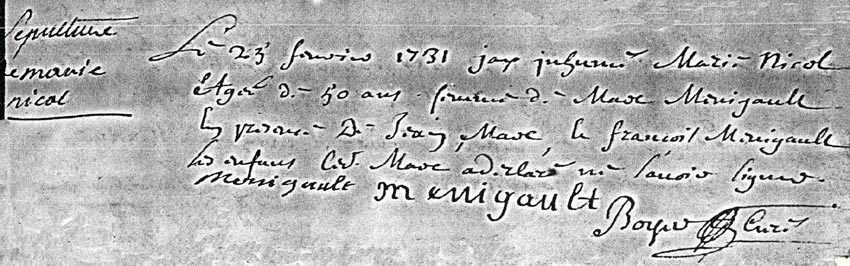 Sepulture
de marie
nicol
Le 23 fevrier 1731 jay inhumé Marie Nicol
Agée de 50 ans femme de Marc Menigault
En presence De Jean, Marc, & françois Menigault
ses enfans Led. Marc a declaré ne sçavoir signer.
Menigault menigault
Boyer Curé